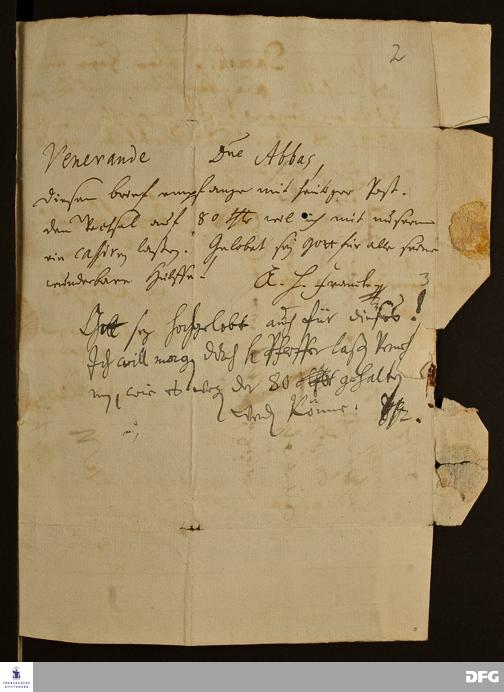 2
Venerande Dne Abbas,
diesen brief empfange mit heutiger Post.
den Wechsel auf 80 thlr wil ich mit unserm
ein cassiren lassen. Gelobet sey Gott für alle seine
wunderbare Hülffe.
A. H. Francke
Gott sey hochgelobt auch für dieses!
Ich will morgen durch H. lassen
, wie es wegen der 80 thlr gehalten
werden könne.
FRANCKESCHE STIFTUNGEN
DFG